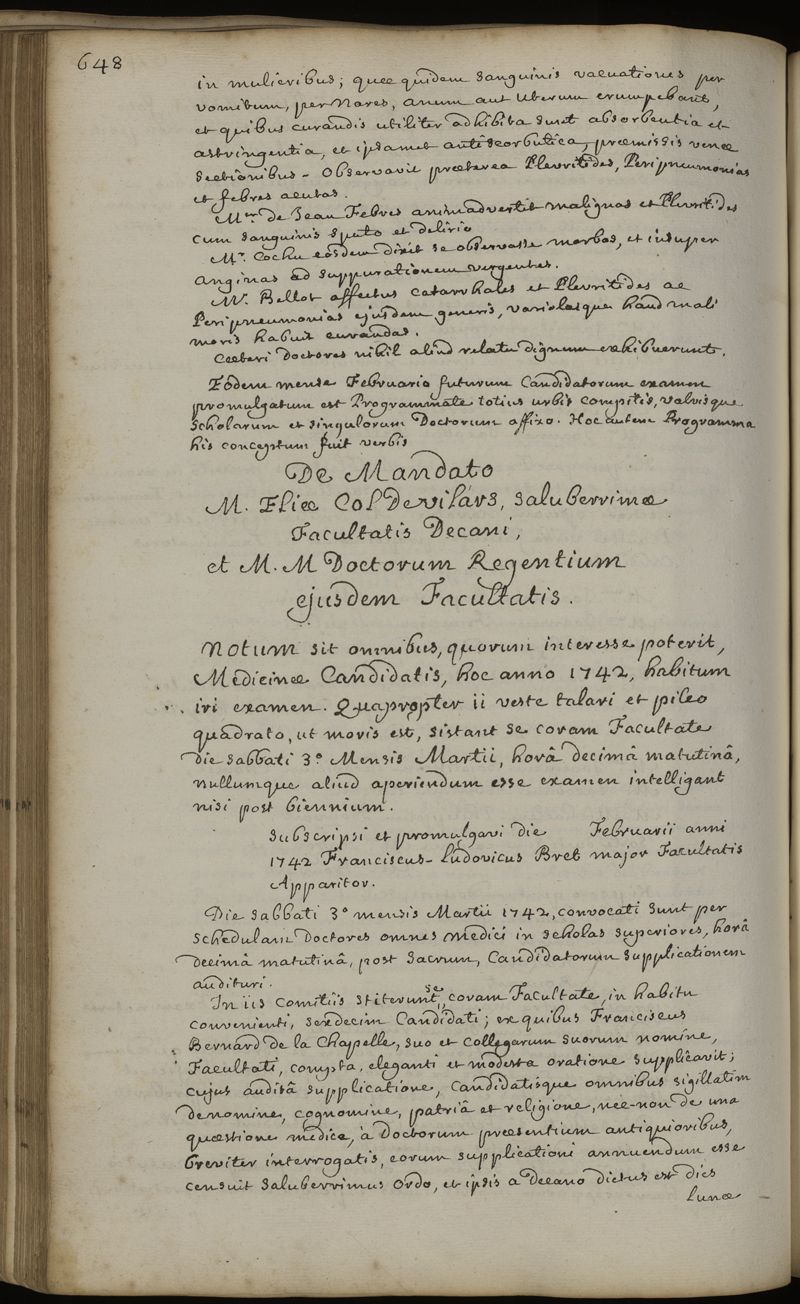 648
in mulieribus; quæ quidem sanguinis vacuationes per
vomitum, per Nares, anum aut Uterum erumpebant,
et quibus curandis utiliter adhibita sunt absorbentia et
astringentia, et ipsamet antiscorbutica, præmissis venæ
Sectionibus - Observavit præterea Pleuritides, Peripneumonias
et febres acutas.
Mer de Jean Febves animadvertit malignas et Pleuritides
cum sanguinis sputo et delirio
Mr. Cochu eosdem dixit se observasse morbos, et insuper
anginas ad suppurationem vergentes.
Mr. Bellot affectus catarrhales et Pleuritides ac
Peripneumonias ejusdem generis, variolasque haud mali
moris habuit curandas.
Cæteri Doctores nihil aliud relatu dignum exhibuerunt.
Eodem mense Februario futurum Candidatorum examen
promulgatum est Programmate totius urbis compitis, valvisque
Scholarum et singulorum Doctorum affixo. Hoc autem Programma
his conceptum fuit verbis
De Mandato
M. Eliæ Col De vilárs, saluberrimæ
Facultatis Decani,
et M. M Doctorum Regentium
ejusdem Facultatis.
Notum sit omnibus, quorum interesse poterit,
Medicinæ Candidatis, hoc anno 1742, habitum
iri examen. Quapropter ii veste talari et pileo
quadrato, ut moris est, sistant se coram Facultate
die sabbati 3º Mensis Martii, horâ decimâ matutinâ,
nullumque aliud aperiendum esse examen intelligant
nisi post biennium.
subscripsi et promulgavi die Februarii anni
1742 Franciscus-Ludovicus Bret major Facultatis
Apparitor.
Die sabbati 3º mensis Martii 1742, convocati sunt per
schedulam Doctores omnes Medici in scholas superiores, horâ
decimâ matutinâ, post sacrum, Candidatorum supplicationem
audituri.
In iis Comitiis stiterunt se, coram Facultate, in habitu
convenienti, sexdecim Candidati; ex quibus Franciscus
Bernard de la Chapelle, suo et collegarum suorum nomine,
Facultati, compta, eleganti et modesta oratione supplicavit;
cujus auditâ supplicatione, Candidatisque omnibus sigillatim
de nomine, cognomine, patriâ et religione, nec-non de una
quæstione medica, à Doctorum præsentium antiquioribus,
breviter interrogatis, eorum supplicationi annuendum esse
censuit Saluberrimus Ordo, et ipsis a Decano dictus est dies
Lunæ